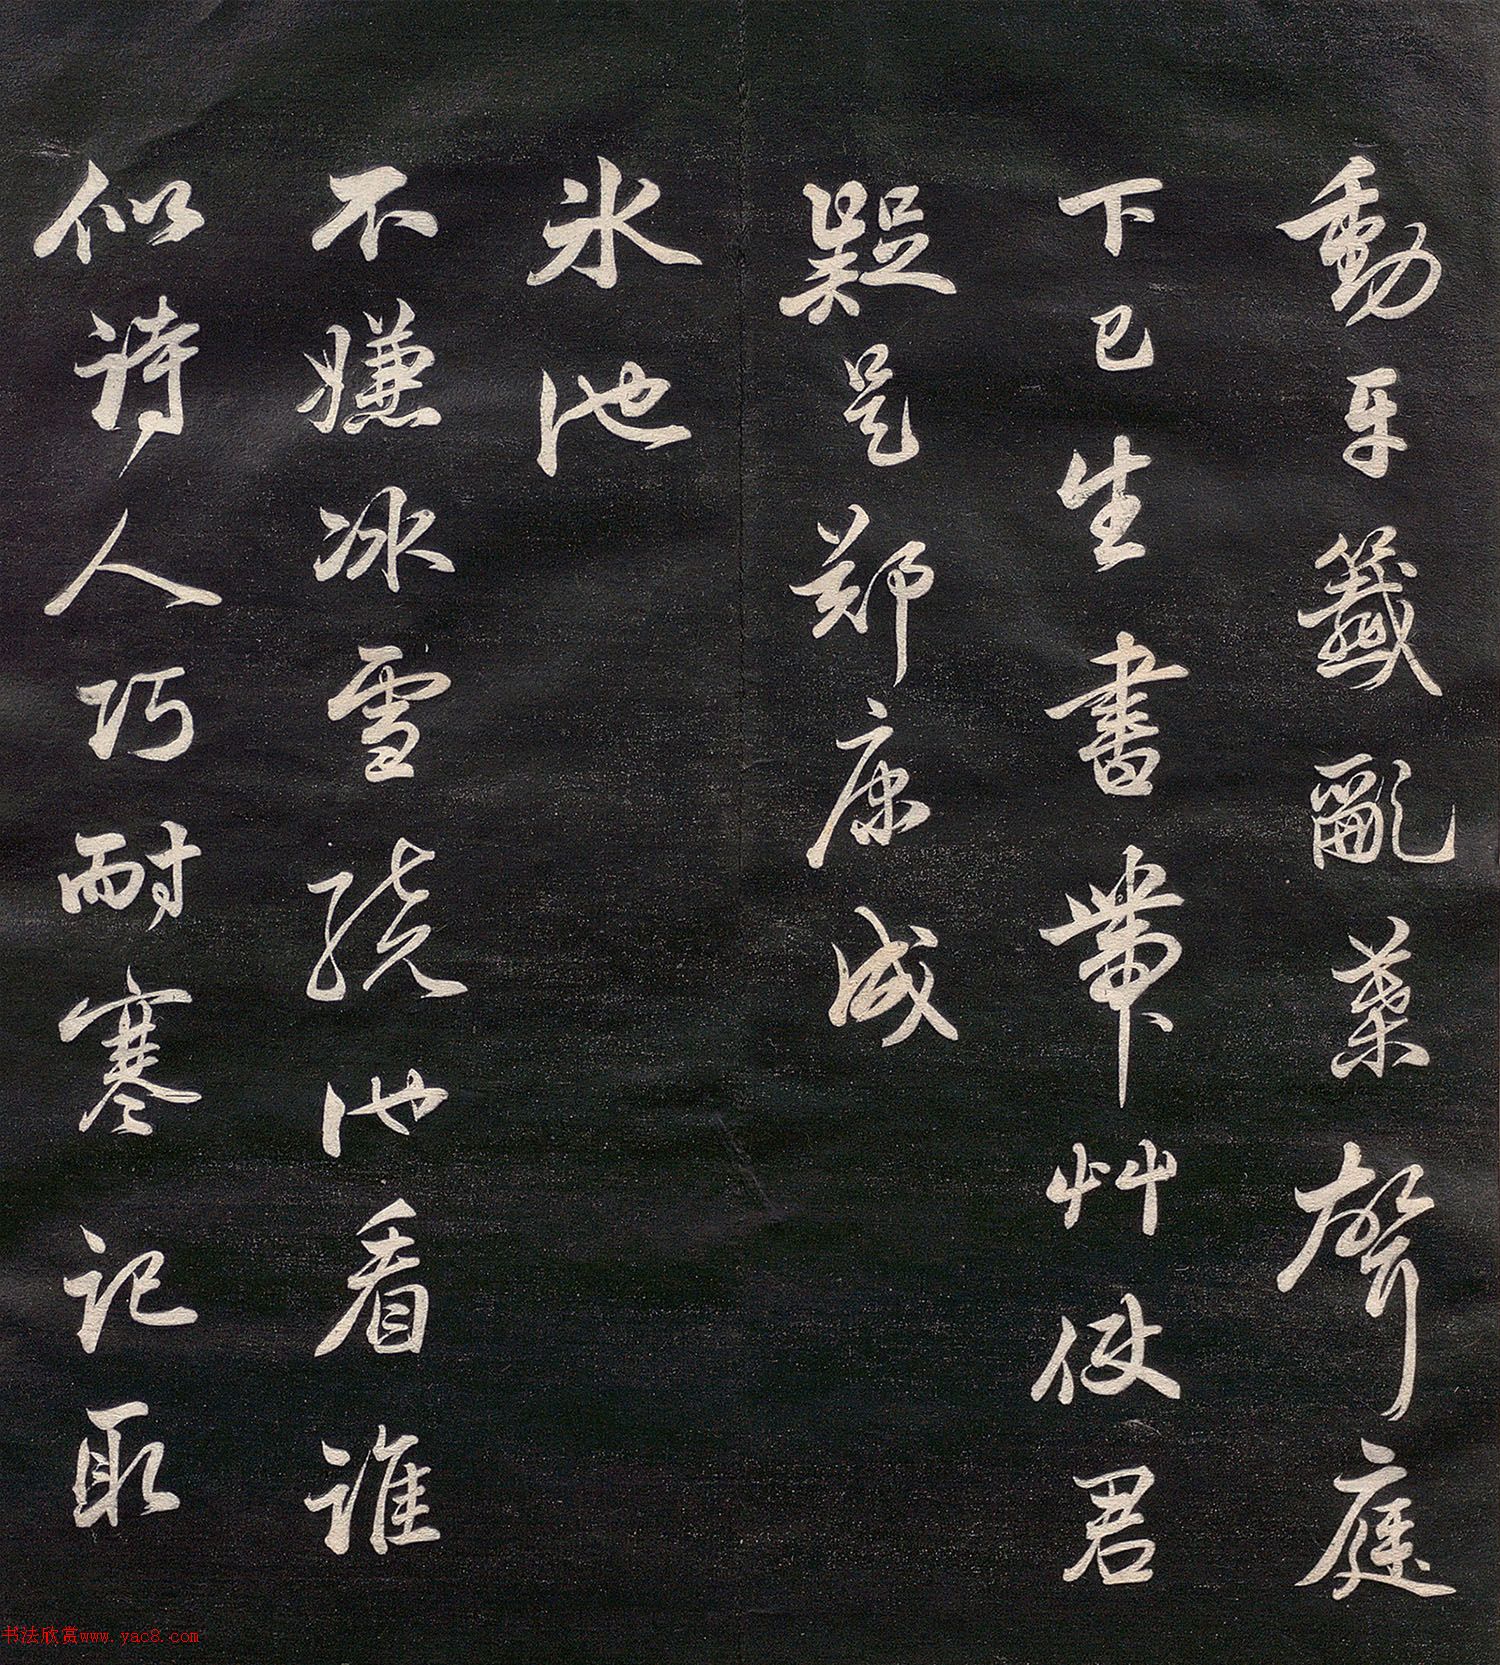 動牙籤亂葉聲庭
下已生書帶艸使君
疑是鄭康成
氷池
不嫌冰雪繞池看誰
似詩人巧耐寒記取
书法欣赏www.yac8.com